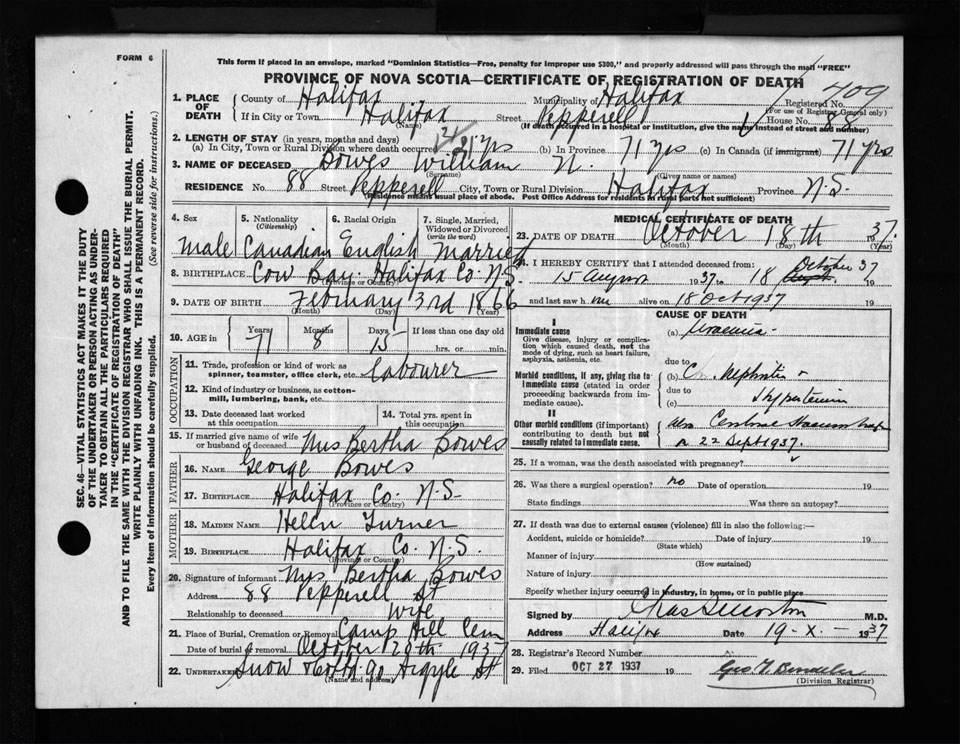 FORM 6
This form if placed in an envelope, marked "Dominion Statistics—Free, penalty for improper use $300," and properly addressed will pass through the mail "FREE"
PROVINCE OF NOVA SCOTIA—CERTIFICATE OF REGISTRATION OF DEATH
409
1. PLACE OF DEATH County of Halifax Municipality of Halifax Registered No.
(For use of Registrar General only)
If in City or Town Halifax Street Pepperell House No. 88
(Name) (If death occurred in a hospital or institution, give the name instead of street and number)
2. LENGTH OF STAY (in years, months and days)
(a) In City, Town or Rural Division where death occurred yrs (b) In Province 71 yrs (c) In Canada (if immigrant) 71 yrs
3. NAME OF DECEASED Bowes William N.
(Surname) (Given name or names)
RESIDENCE No. 88 Street Pepperell City, Town or Rural Division Halifax Province N.S.
(Residence means usual place of abode. Post Office Address for residents in rural parts not sufficient)
4. Sex 5. Nationality (Citizenship) 6. Racial Origin 7. Single, Married, Widowed or Divorced (write the word)
Male Canadian English Married
8. BIRTHPLACE Cow Bay Halifax Co. N.S.
(Province or Country)
9. DATE OF BIRTH February 3rd 1866
(Month) (Day) (Year)
10. AGE in Years Months Days If less than one day old
71 8 15 hrs. or min.
OCCUPATION
11. Trade, profession or kind of work as spinner, teamster, office clerk, etc. Labourer
12. Kind of industry or business, as cotton-mill, lumbering, bank, etc.
13. Date deceased last worked at this occupation 14. Total yrs. spent in this occupation
15. If married give name of wife or husband of deceased Mrs Bertha Bowes
FATHER
16. NAME George Bowes
17. BIRTHPLACE Halifax Co. N.S.
(Province or Country)
MOTHER
18. MAIDEN NAME Helen Turner
19. BIRTHPLACE Halifax Co. N.S.
(Province or Country)
20. Signature of informant Mrs Bertha Bowes
Address 88 Pepperell St
Relationship to deceased Wife
21. Place of Burial, Cremation or Removal Camp Hill Cem
Date of burial or removal October 20th 1937
22. Undertaker Snow & Co Ltd 90 Argyle St
(Name and address)
MEDICAL CERTIFICATE OF DEATH
23. DATE OF DEATH October 18th 1937.
(Month) (Day) (Year)
24. I HEREBY CERTIFY that I attended deceased from:
15 August 1937 to 18 October 1937
and last saw him alive on 18 Oct 1937 19
CAUSE OF DEATH
I
Immediate cause (a) Uraemia
Give disease, injury or complication which caused death, not the mode of dying, such as heart failure, asphyxia, asthenia, etc.
due to
Morbid conditions, if any, giving rise to immediate cause (stated in order proceeding backwards from immediate cause). (b) Ch. nephritis
due to
(c) Hypertension
II
Other morbid conditions (if important) contributing to death but not causally related to immediate cause.
Also Cerebral
22 Sept 1937.
25. If a woman, was the death associated with pregnancy?
26. Was there a surgical operation? no Date of operation 19
State findings Was there an autopsy?
27. If death was due to external causes (violence) fill in also the following:—
Accident, suicide or homicide? Date of injury 19
(State which)
Manner of injury
(How sustained)
Nature of injury
Specify whether injury occurred in industry, in home, or in public place
Signed by Chas S Morton M.D.
Address Halifax Date 19-X-1937
28. Registrar's Record Number
29. Filed OCT 27 1937 19
(Division Registrar)
SEC. 46—VITAL STATISTICS ACT MAKES IT THE DUTY
OF THE UNDERTAKER OR PERSON ACTING AS UNDER-
TAKER TO OBTAIN ALL THE PARTICULARS REQUIRED
IN THE "CERTIFICATE OF REGISTRATION OF DEATH"
AND TO FILE THE SAME WITH THE DIVISION REGISTRAR WHO SHALL ISSUE THE BURIAL PERMIT.
WRITE PLAINLY WITH UNFADING INK. THIS IS A PERMANENT RECORD.
Every item of information should be carefully supplied. (See reverse side for instructions.)